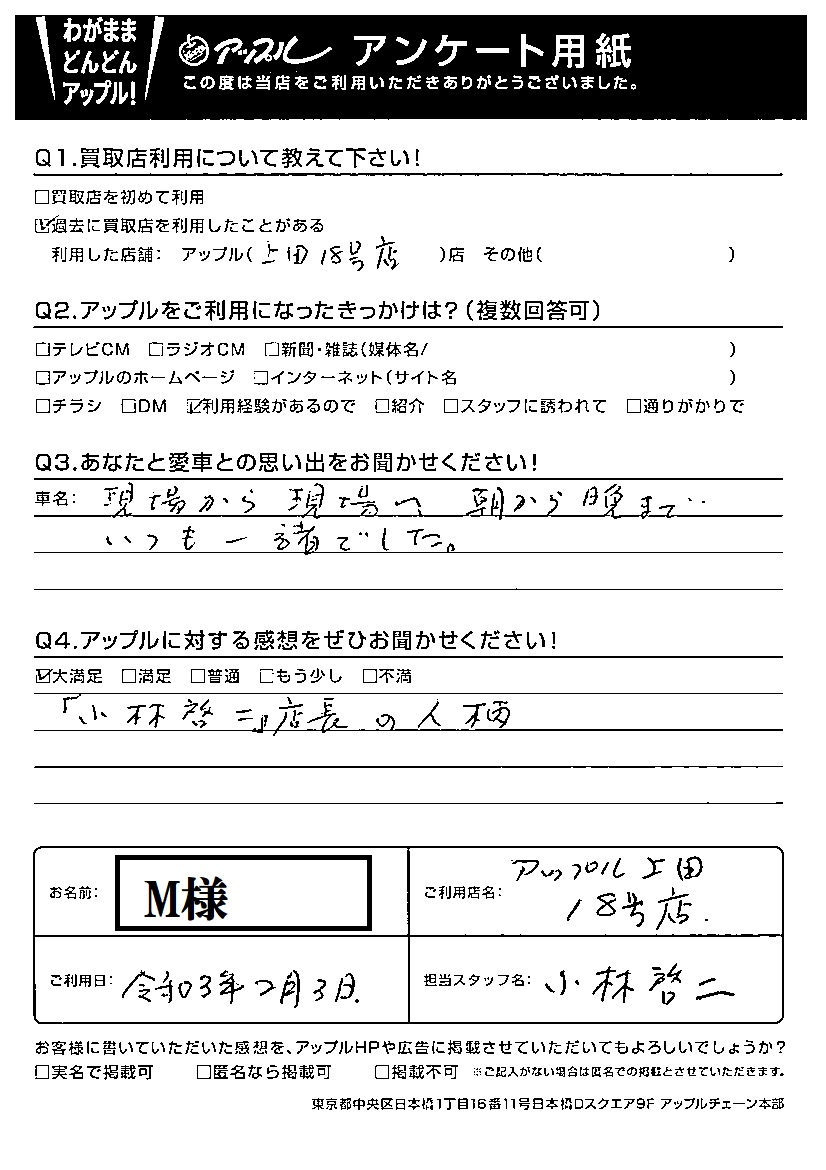 わがまま
どんどん
アップル!
アップル アンケート用紙
この度は当店をご利用いただきありがとうございました。
Q1.買取店利用について教えて下さい!
□買取店を初めて利用
☑過去に買取店を利用したことがある
利用した店舗: アップル(上田18号店 )店 その他( )
Q2.アップルをご利用になったきっかけは?(複数回答可)
□テレビCM □ラジオCM □新聞・雑誌(媒体名/ )
□アップルのホームページ □インターネット(サイト名 )
□チラシ □DM ☑利用経験があるので □紹介 □スタッフに誘われて □通りがかりで
Q3.あなたと愛車との思い出をお聞かせください!
車名: 現場から現場へ 朝から晩まで‥
いつも一諸でした。
Q4.アップルに対する感想をぜひお聞かせください!
☑大満足 □満足 □普通 □もう少し □不満
『小林啓二』店長の人柄
お名前: M様
ご利用店名: アップル上田
18号店.
ご利用日: 令和03年2月3日.
担当スタッフ名: 小林啓二
お客様に書いていただいた感想を、アップルHPや広告に掲載させていただいてもよろしいでしょうか?
□実名で掲載可 □匿名なら掲載可 □掲載不可 ※ご記入がない場合は匿名での掲載とさせていただきます。
東京都中央区日本橋1丁目16番11号日本橋Dスクエア9F アップルチェーン本部